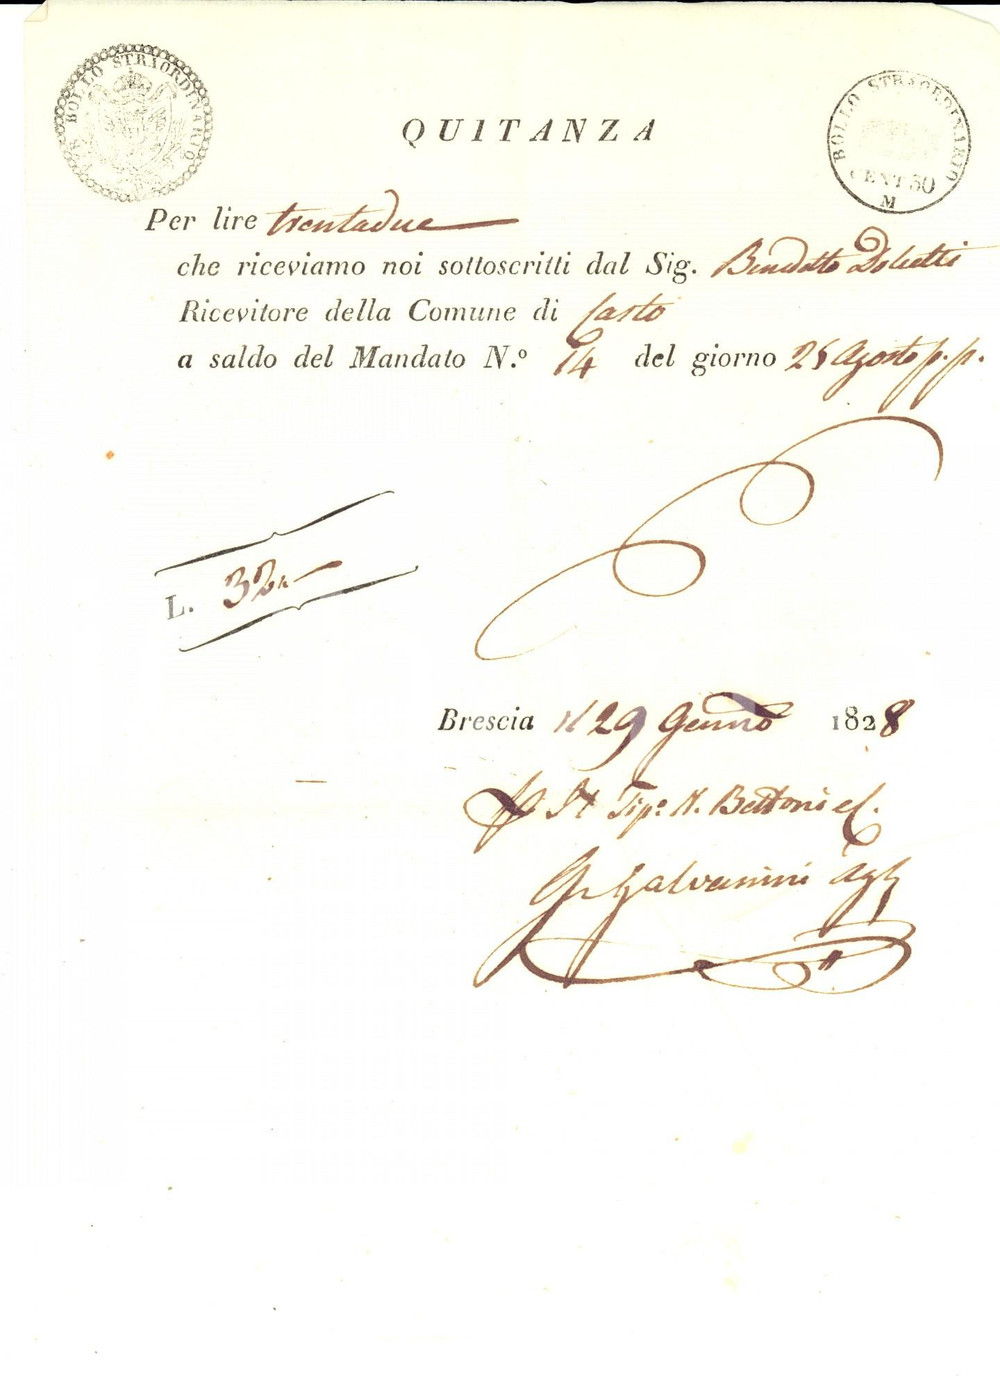 BOLLO STRAORDINARIO
BOLLO STRAORDINARIO
CENT 50
M
QUITANZA
Per lire trentadue
che riceviamo noi sottoscritti dal Sig. Benedetto
Ricevitore della Comune di Casto
a saldo del Mandato N.º 14 del giorno 25 Agosto p. p.
L. 32
Brescia il 29 Genno 1828
Tip.a N. Bettoni e C.
G. Galvanini